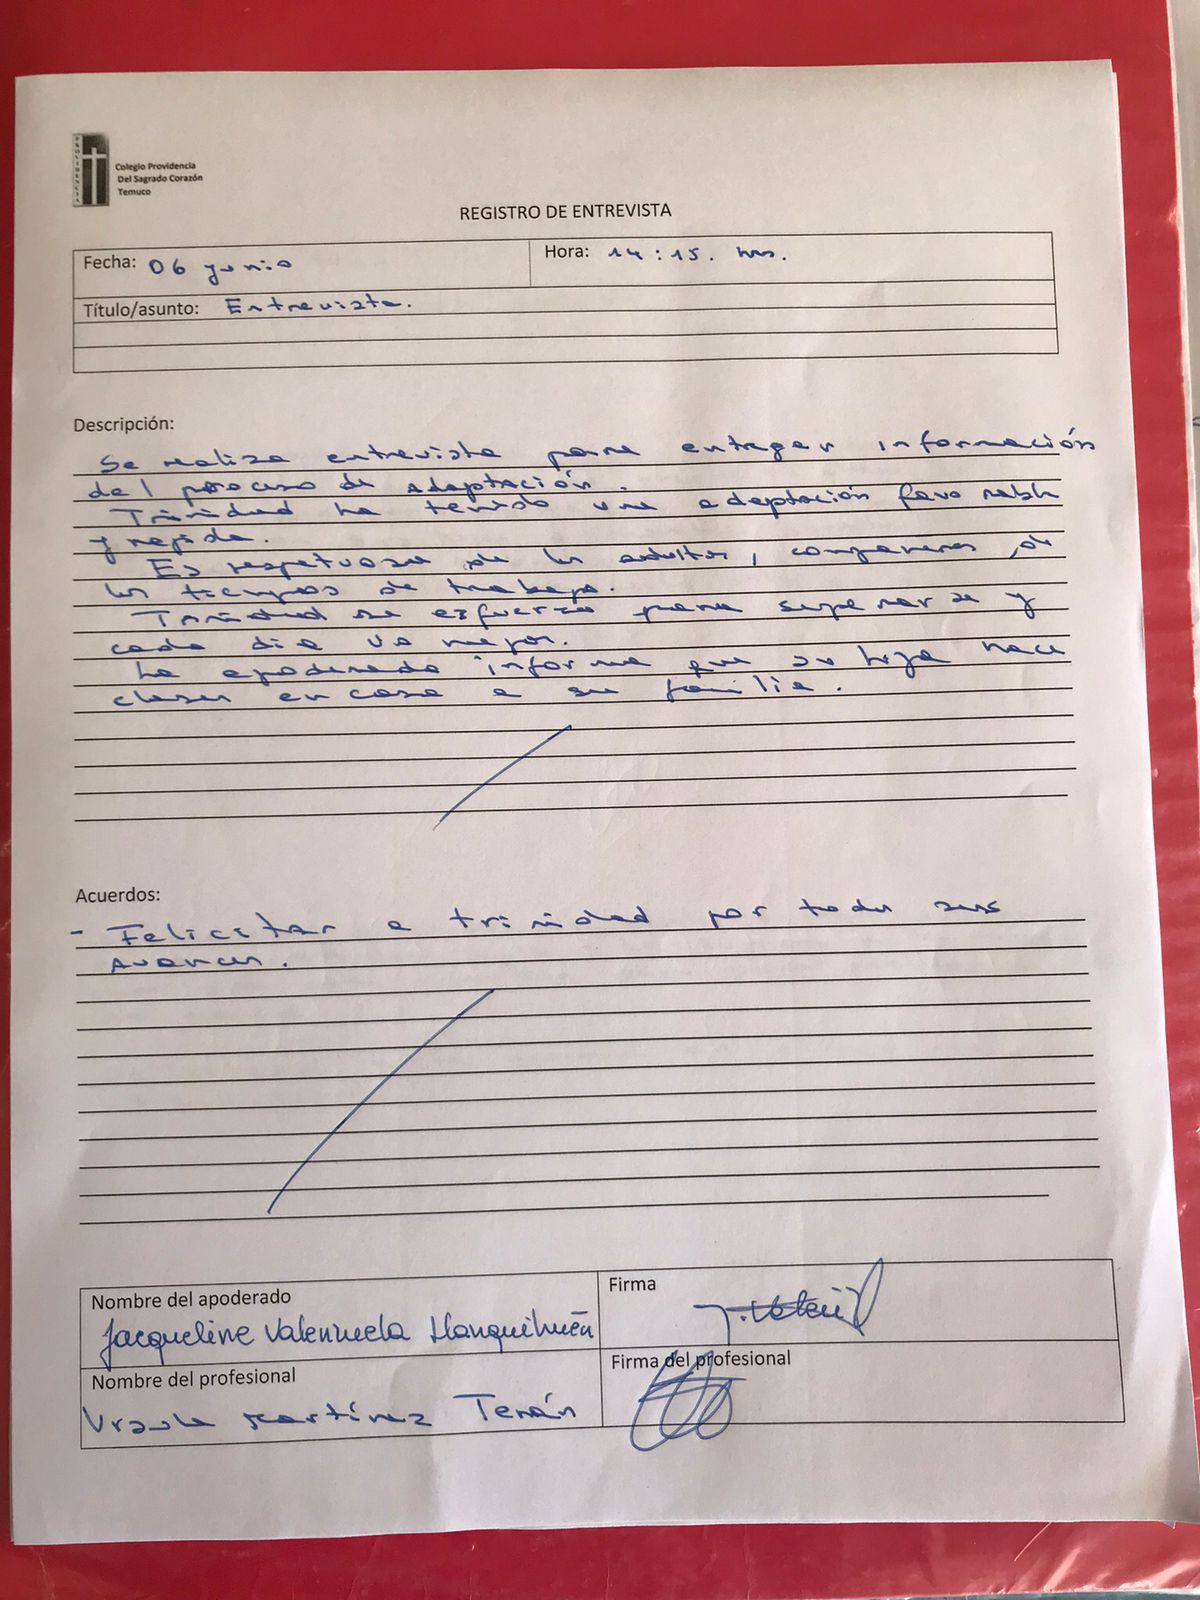 PROVIDENCIA
Colegio Providencia
Del Sagrado Corazón
Temuco
REGISTRO DE ENTREVISTA
Fecha: 06 junio
Hora: 14:15. hrs.
Título/asunto: Entrevista.
Descripción:
Se realiza entrevista para entregar información
del proceso de adaptación.
Trinidad ha tenido una adaptación favorable
y rápida.
Es respetuosa de los adultos, compañeros, de
los tiempos de trabajo.
Trinidad se esfuerza para superarse y
cada día va mejor.
La apoderada informa que su hija hace
clases en casa a su familia.
Acuerdos:
- Felicitar a trinidad por todos sus
avances.
Nombre del apoderado
Firma
Jacqueline Valenzuela Llanquihuén
Nombre del profesional
Firma del profesional
Ursula Martínez Terán